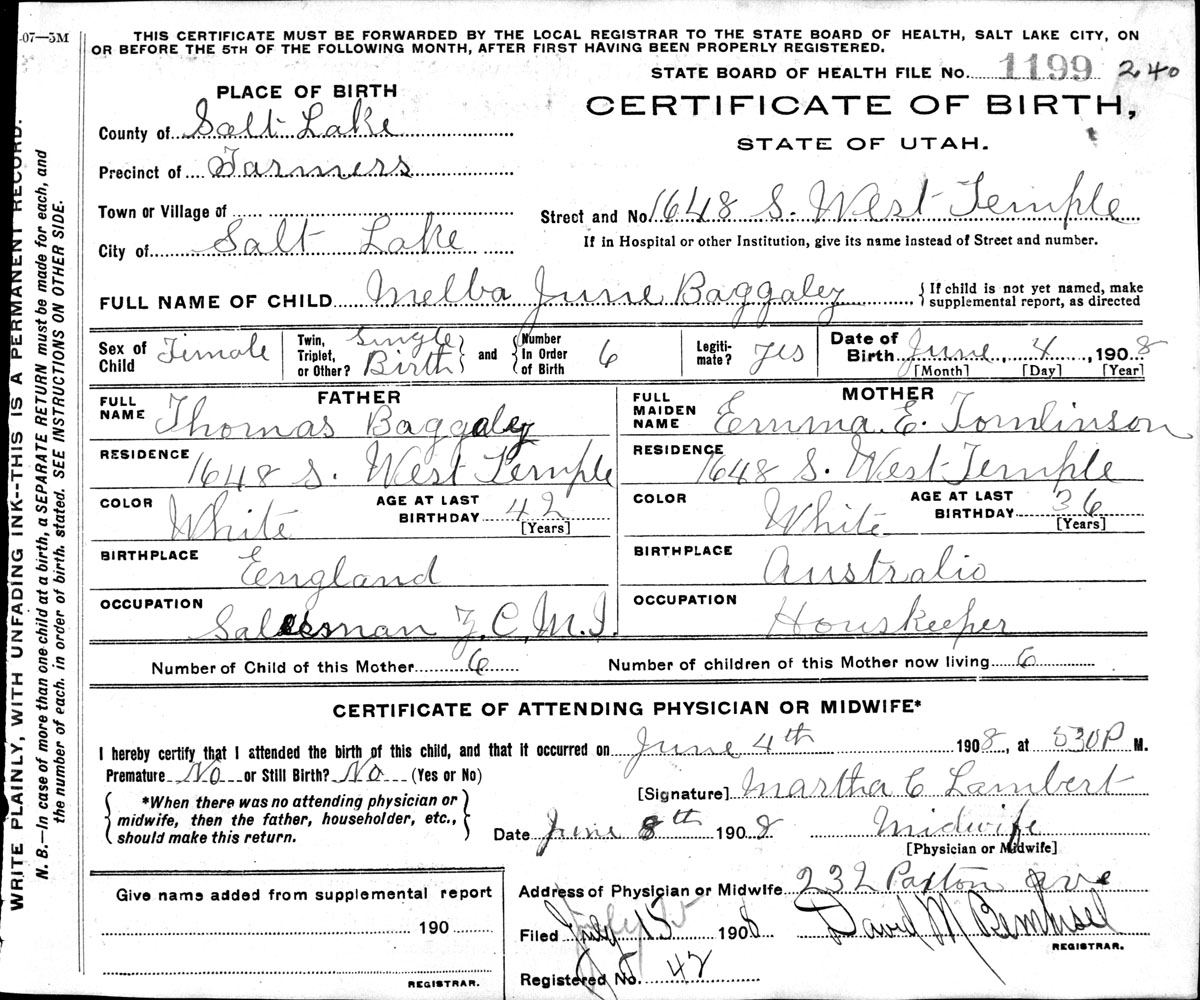 -07—3M
THIS CERTIFICATE MUST BE FORWARDED BY THE LOCAL REGISTRAR TO THE STATE BOARD OF HEALTH, SALT LAKE CITY, ON
OR BEFORE THE 5TH OF THE FOLLOWING MONTH, AFTER FIRST HAVING BEEN PROPERLY REGISTERED.
STATE BOARD OF HEALTH FILE No. 1199 240
PLACE OF BIRTH
CERTIFICATE OF BIRTH,
STATE OF UTAH.
County of Salt Lake
Precinct of Farmers
Town or Village of
City of Salt Lake
Street and No. 1648 S. West Temple
If in Hospital or other Institution, give its name instead of Street and number.
FULL NAME OF CHILD Melba June Baggaley
If child is not yet named, make
supplemental report, as directed
Sex of Child Female
Twin, Triplet, or Other? Single Birth and Number In Order of Birth 6
Legiti-mate? Yes
Date of Birth June 4, 1908
[Month] [Day] [Year]
FATHER
FULL NAME Thomas Baggaley
RESIDENCE 1648 S. West Temple
COLOR White AGE AT LAST BIRTHDAY 42 [Years]
BIRTHPLACE England
OCCUPATION Salesman Z.C.M.I.
MOTHER
FULL MAIDEN NAME Emma E. Tomlinson
RESIDENCE 1648 S. West Temple
COLOR White AGE AT LAST BIRTHDAY 36 [Years]
BIRTHPLACE Australia
OCCUPATION Houskeeper
Number of Child of this Mother 6 Number of children of this Mother now living 6
CERTIFICATE OF ATTENDING PHYSICIAN OR MIDWIFE*
I hereby certify that I attended the birth of this child, and that it occurred on June 4th 1908, at 530P M.
Premature No or Still Birth? No (Yes or No)
*When there was no attending physician or
midwife, then the father, householder, etc.,
should make this return.
[Signature] Martha C Lambert
Date June 8th 1908 Midwife
[Physician or Midwife]
Give name added from supplemental report
190
REGISTRAR.
Address of Physician or Midwife 232 Paxton Ave
Filed July 15 1908 David M
REGISTRAR.
Registered No. 42
WRITE PLAINLY, WITH UNFADING INK--THIS IS A PERMANENT RECORD.
N. B.—In case of more than one child at a birth, a SEPARATE RETURN must be made for each, and
the number of each, in order of birth, stated. SEE INSTRUCTIONS ON OTHER SIDE.